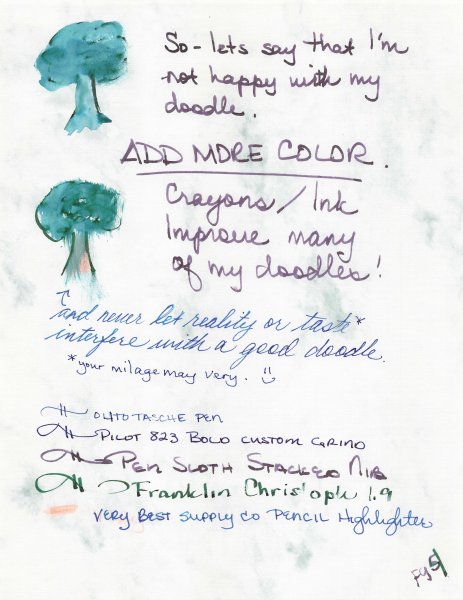 So - lets say that I'm
not happy with my
doodle.
ADD MORE COLOR.
Crayons / Ink
Improve many
of my doodles!
and never let reality or taste*
interfere with a good doodle.
*your milage may very.
OHTO TASCHE PEN
PILOT 823 BOLD CUSTOM GRIND
PEN SLOTH STACKED NIB
Franklin Christoph 1.9
VERY BEST SUPPLY CO PENCIL HIGHLIGHTER